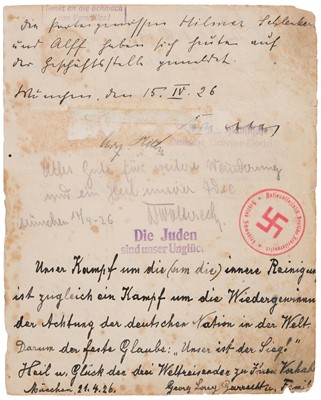 Denkt an die Schmach
Die Parteigenossen Hilmar
und Alff haben sich heute auf
der Geschäftsstelle gemeldet.
München, den 15. IV. 26
Alles Gute für weitere Wanderung
und ein Heil unserer Idee
München 17/4-26
Die Juden
sind unser Unglück.
Unser Kampf um die (um die) innere Reinigung
ist zugleich ein Kampf um die Wiedergewinnung
der Achtung der deutschen Nation in der Welt.
Darum der feste Glaube: „Unser ist der Sieg!"
Heil u. Glück den drei Weltreisenden zu Ihrem Vorhaben
München 21.4.26. Georg u.